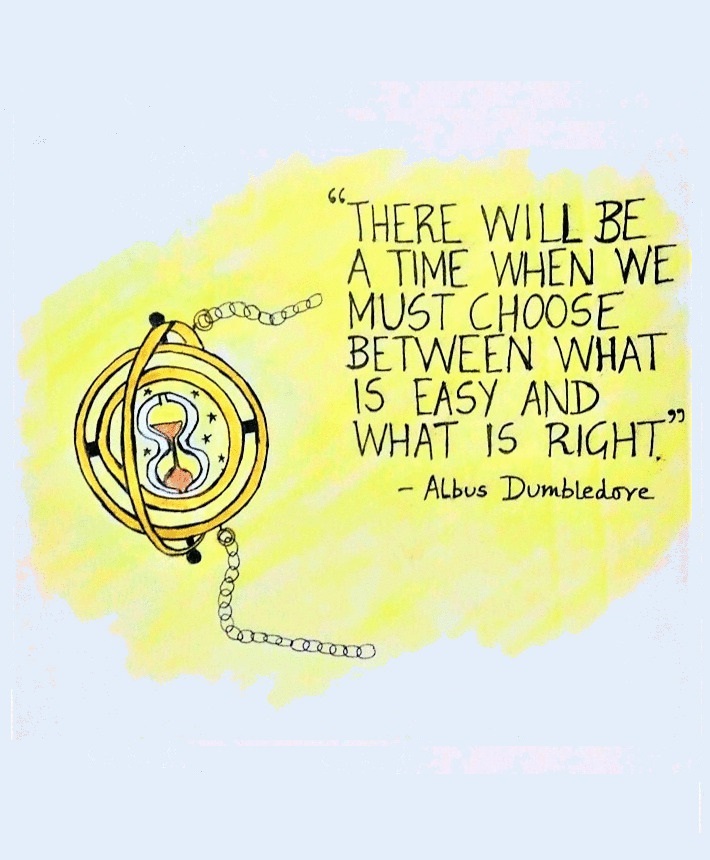 “THERE WILL BE
A TIME WHEN WE
MUST CHOOSE
BETWEEN WHAT
IS EASY AND
WHAT IS RIGHT.”
- ALbus Dumbledore